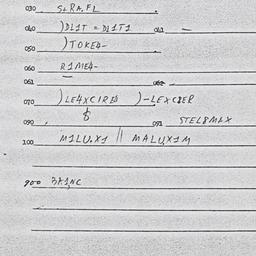 030 S+RA.FL
040 )DL1T = DL1T1 041 —
050 )TOKE4-
060 R1ME4-
061 062
070 )LE4XCIRE )-LEXCIER
090 $ 091 STEL8MLX
100 M1LU.X1 || MALU,X1M
900 BA1,NC